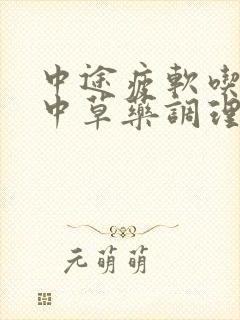 中途疲軟喫
中草藥調理
元萌萌